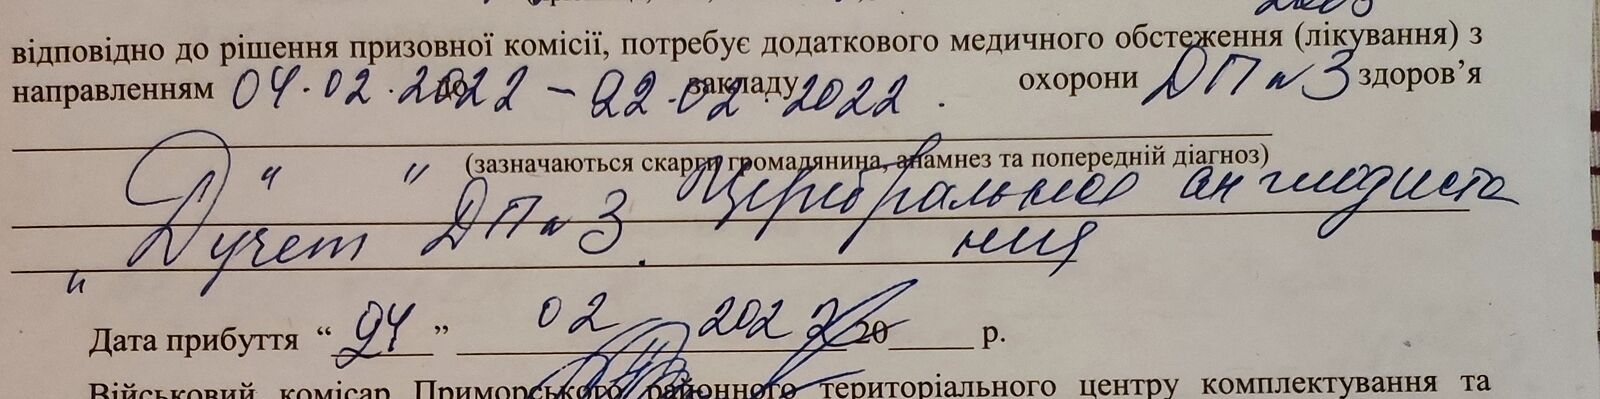 відповідно до рішення призовної комісії, потребує додаткового медичного обстеження (лікування) з
направленням 04.02.2022 – 22.02.2022. до закладу охорони ДП № 3 здоров’я
(зазначаються скарги громадянина, анамнез та попередній діагноз)
" " Церебральная ангиодиста
Д учет ДП № 3. ния
"
Дата прибуття “ 24 ” 02 2022 20 р.
Військовий комісар Приморського районного територіального центру комплектування та